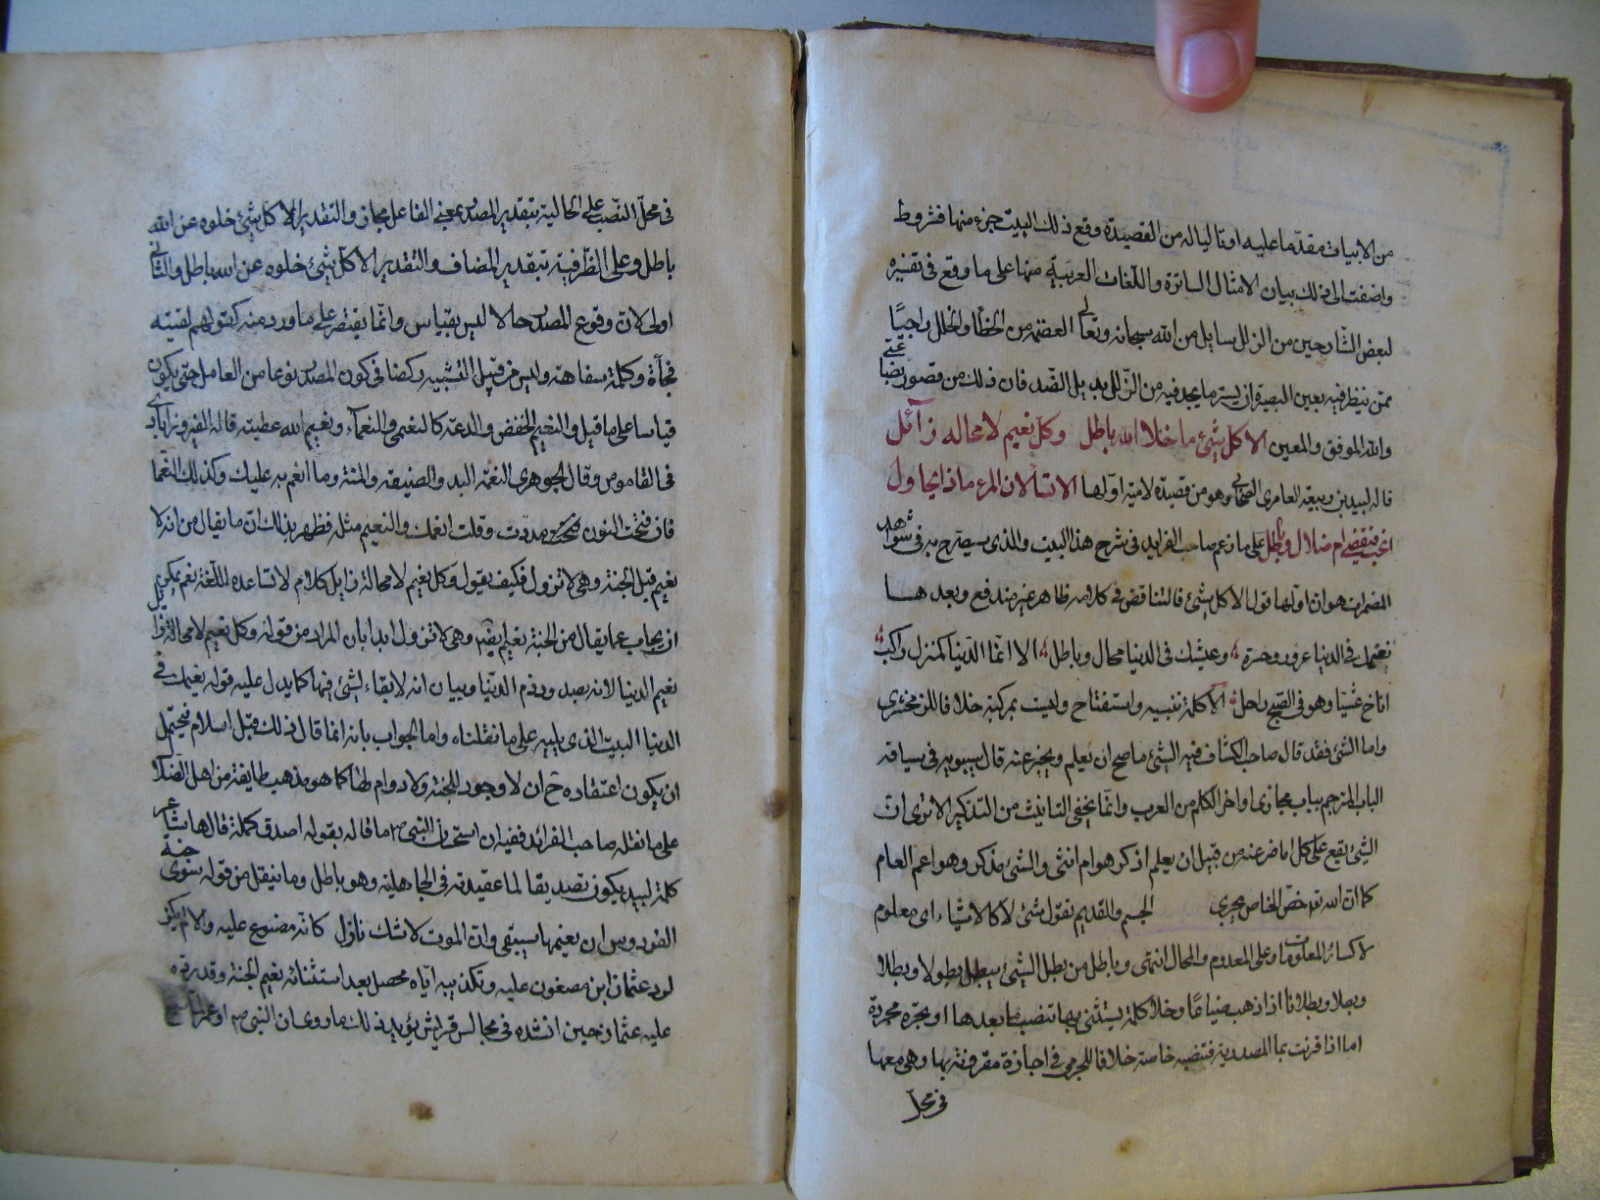 من الابيات مقدّما عليه او تاليا له من القصيدة وقع ذلك البيت جزء منها
واضفت الى ذلك بيان الامثال السائرة واللغات العربية منها على ما وقع في تفسيره
لبعض الشارحين من الزلل سايل من الله سبحانه وتعالى العصمة من الخطأ والخلل واجيًا
ممن ينظر فيه بعين البصيرة ان يستر ما يجد فيه من الزلل بديل الصّد فان ذلك من قصور
والله الموفق والمعين الا كل شئ ما خلا الله باطل وكل نعيم لا محالة زآئل
قاله لبيد بن ربيعة العامرى الصحابى وهو من قصيدة لامية اوّلها الا تسألان المرء ماذا يحاول
انحب فيقضى ام ضلال وباطل على ما زعم صاحب الفرايد في شرح هذا البيت والذى سيصرّح به في شواهد
المضمرات هو ان اولها قوله الا كل شئ فالتناقض في كلامه ظاهر غير مندفع وبعدهــا
نعيمك في الدنيا غرور وحسرة وعيشك في الدنيا محال وباطل الا انما الدنيا كمنزل راكب
اناخ عشيا وهو في الصبح راحل الا كلمة تنبيه واستفتاح وليست بمركبة خلافا للزمخشرى
واما الشئ فقد قال صاحب الكشاف فيه الشئ ما صح ان يعلم ويخبر عنه قال سيبويه في سياقه
الباب المترجم بباب مجارى اواخر الكلم من العرب وانّما يخفى التانيث من التذكير الا ترى انّ
الشئ يقع على كل ما اخبر عنه من قبل ان يعلم اذكر هو ام انثى والشئ مذكر وهو اعم العام
كما ان الله اخصّ الخاص يجرى الجسم والقديم تقول شئ لا كالاشياء اى معلوم
لا كسائر المعلومات وعلى المعدوم والمحال انتهى وباطل من بطل الشئ يبطل بطولا وبطلا
وبطلا وبطلانا اذا ذهب ضياعًا وخلا كلمة يستثنى بها تنصب ما بعدها او تجرّه مجردة
اما اذا قرنت بما المصدرية فتنصبه خاصة خلافا للجرمى في اجازة مقرونة بها وهى معها
في محلّ
في محلّ النصب على الحالية بتقدير المصدر بمعنى الفاعل مجاز والتقدير الا كل شئ خلوه عن الله
باطل وعلى الظرفية بتقدير المضاف والتقدير الا كل شئ خلوه عن الله باطل والثانى
اولى لانّ وقوع المصدر حالا ليس بقياس وانّما يقتصر على ما ورد منه كقولهم لقيته
فجأة وكلمته شفاهة وليس من قبيل التشبيه ركضا في كون المصدر نوعا من العامل حتى يكون
قياسا على ما قيل والنعيم الخفض والدعة كالنعمى والنعمآء ونعيم الله عطيته قاله الفيروزابادى
في القاموس وقال الجوهرى النعمة اليد والصنيعة والمنة وما انعم به عليك وكذلك النعما
فان فتحت النون مددت وقلت انعمت والنعيم مثله فظهر بذلك انّ ما يقال من انه لا
نعيم قبل الجنة وهى لا تزول فكيف يقول وكل نعيم لا محالة زايل كلام لا تساعده اللغة نعم يمكن
ان يجاب عما يقال من الجنة نعيم ايضا وهى لا تزول ابدا بان المراد من قوله وكل نعيم لا محالة زايل
نعيم الدنيا لانه بصدد ذم الدنيا وبيان انه لا بقاء لشئ فيها كما يدل عليه قوله نعيمك في
الدنيا البيت الذى يليه على ما نقلناه واما الجواب بانه انما قال ذلك قبل اسلام فيحتمل
ان يكون اعتقاده ح ان لا وجود للجنة ولا دوام لها كما هو مذهب طايفة من اهل الضلال
على ما نقله صاحب الفرائد ففيه ان استحسان النبى ما قاله بقوله اصدق كلمة قالها شاعر
كلمة لبيد يكون تصديقا لما عقيدته في الجاهلية وهو باطل وما ينقل من قوله سوى جنة
الفردوس ان نعيمها سيبقى وان الموت لا شك نازل كانه مصنوع عليه والا لم يكن
لرد عثمان ابن مضعون عليه وتكذيبه اياه محصل بعد استثنائه نعيم الجنة وقد رد
عليه عثمان حين انشده في مجالس قريش يؤيد ذلك ما روى ان النبى